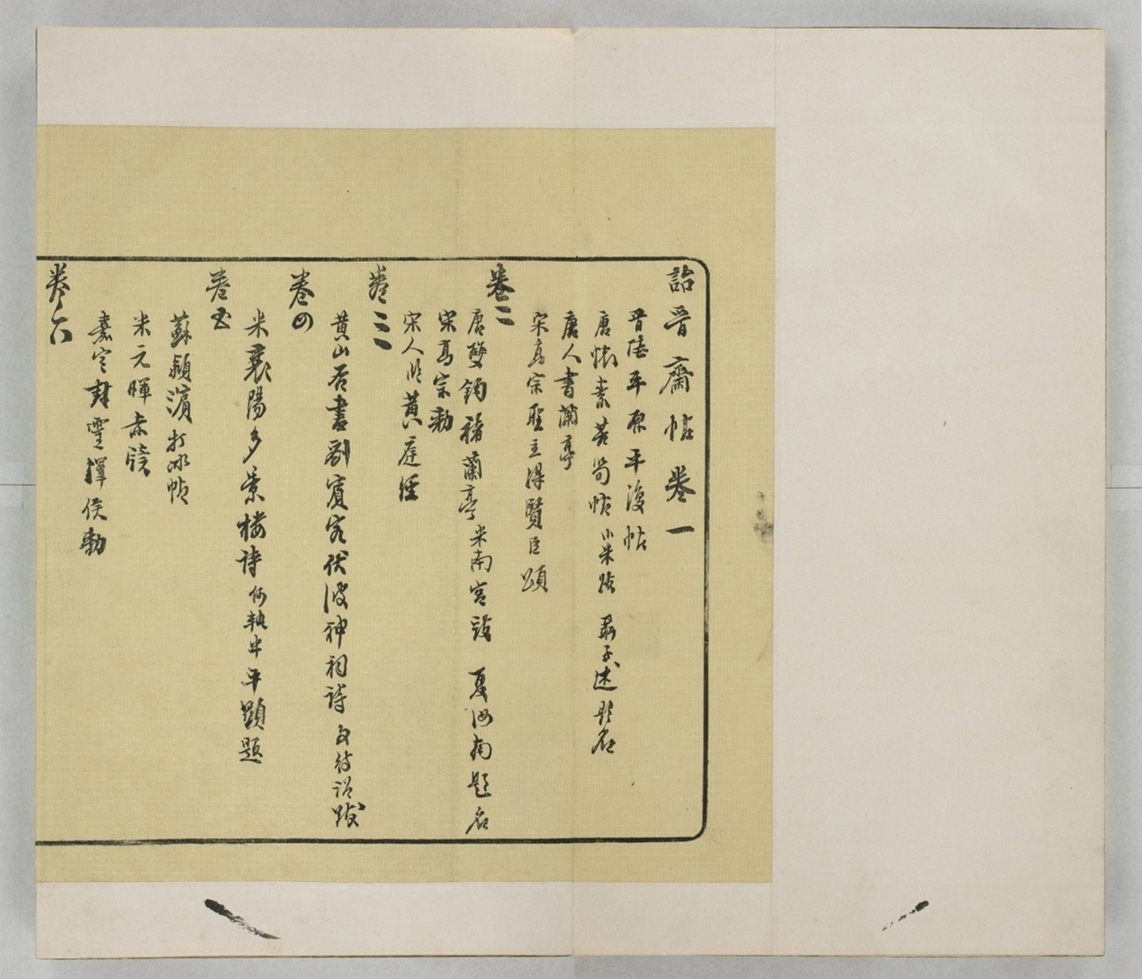 詒晉齋帖卷一
晉陸平原平復帖
唐懷素苦筍帖 小米跋 聶子述題名
唐人書蘭亭
宋高宗聖主得賢臣頌
卷二
唐雙鉤禊蘭亭 米南宮跋 夏 題名
宋高宗勅
宋人臨黃庭經
卷三
黃山谷書劉賓客伏波神祠詩 文待詔跋
卷四
米襄陽多景樓詩 何執中 題
卷五
蘇潁濱打冰帖
米元暉赤壁
嘉定封靈澤侯勅
卷六